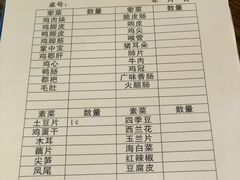 桌号: 年 月 日
荤菜 数量 荤菜 数量
鸡肉块 脆皮肠
鸡脚皮 响皮
鸭脚皮 鸡尖
鸡翅尖 喉管
掌中宝 猪耳朵
鸡郡肝 肺片
鸡心 牛肉
鸭肠 鸡冠
郡把 广味香肠
毛肚 火腿肠
素菜 数量 素菜 数量
土豆片 10 四季豆
鸡蛋干 西兰花
木耳 玉兰片
藕片 海白菜
尖笋 红辣椒
凤尾 豆腐皮